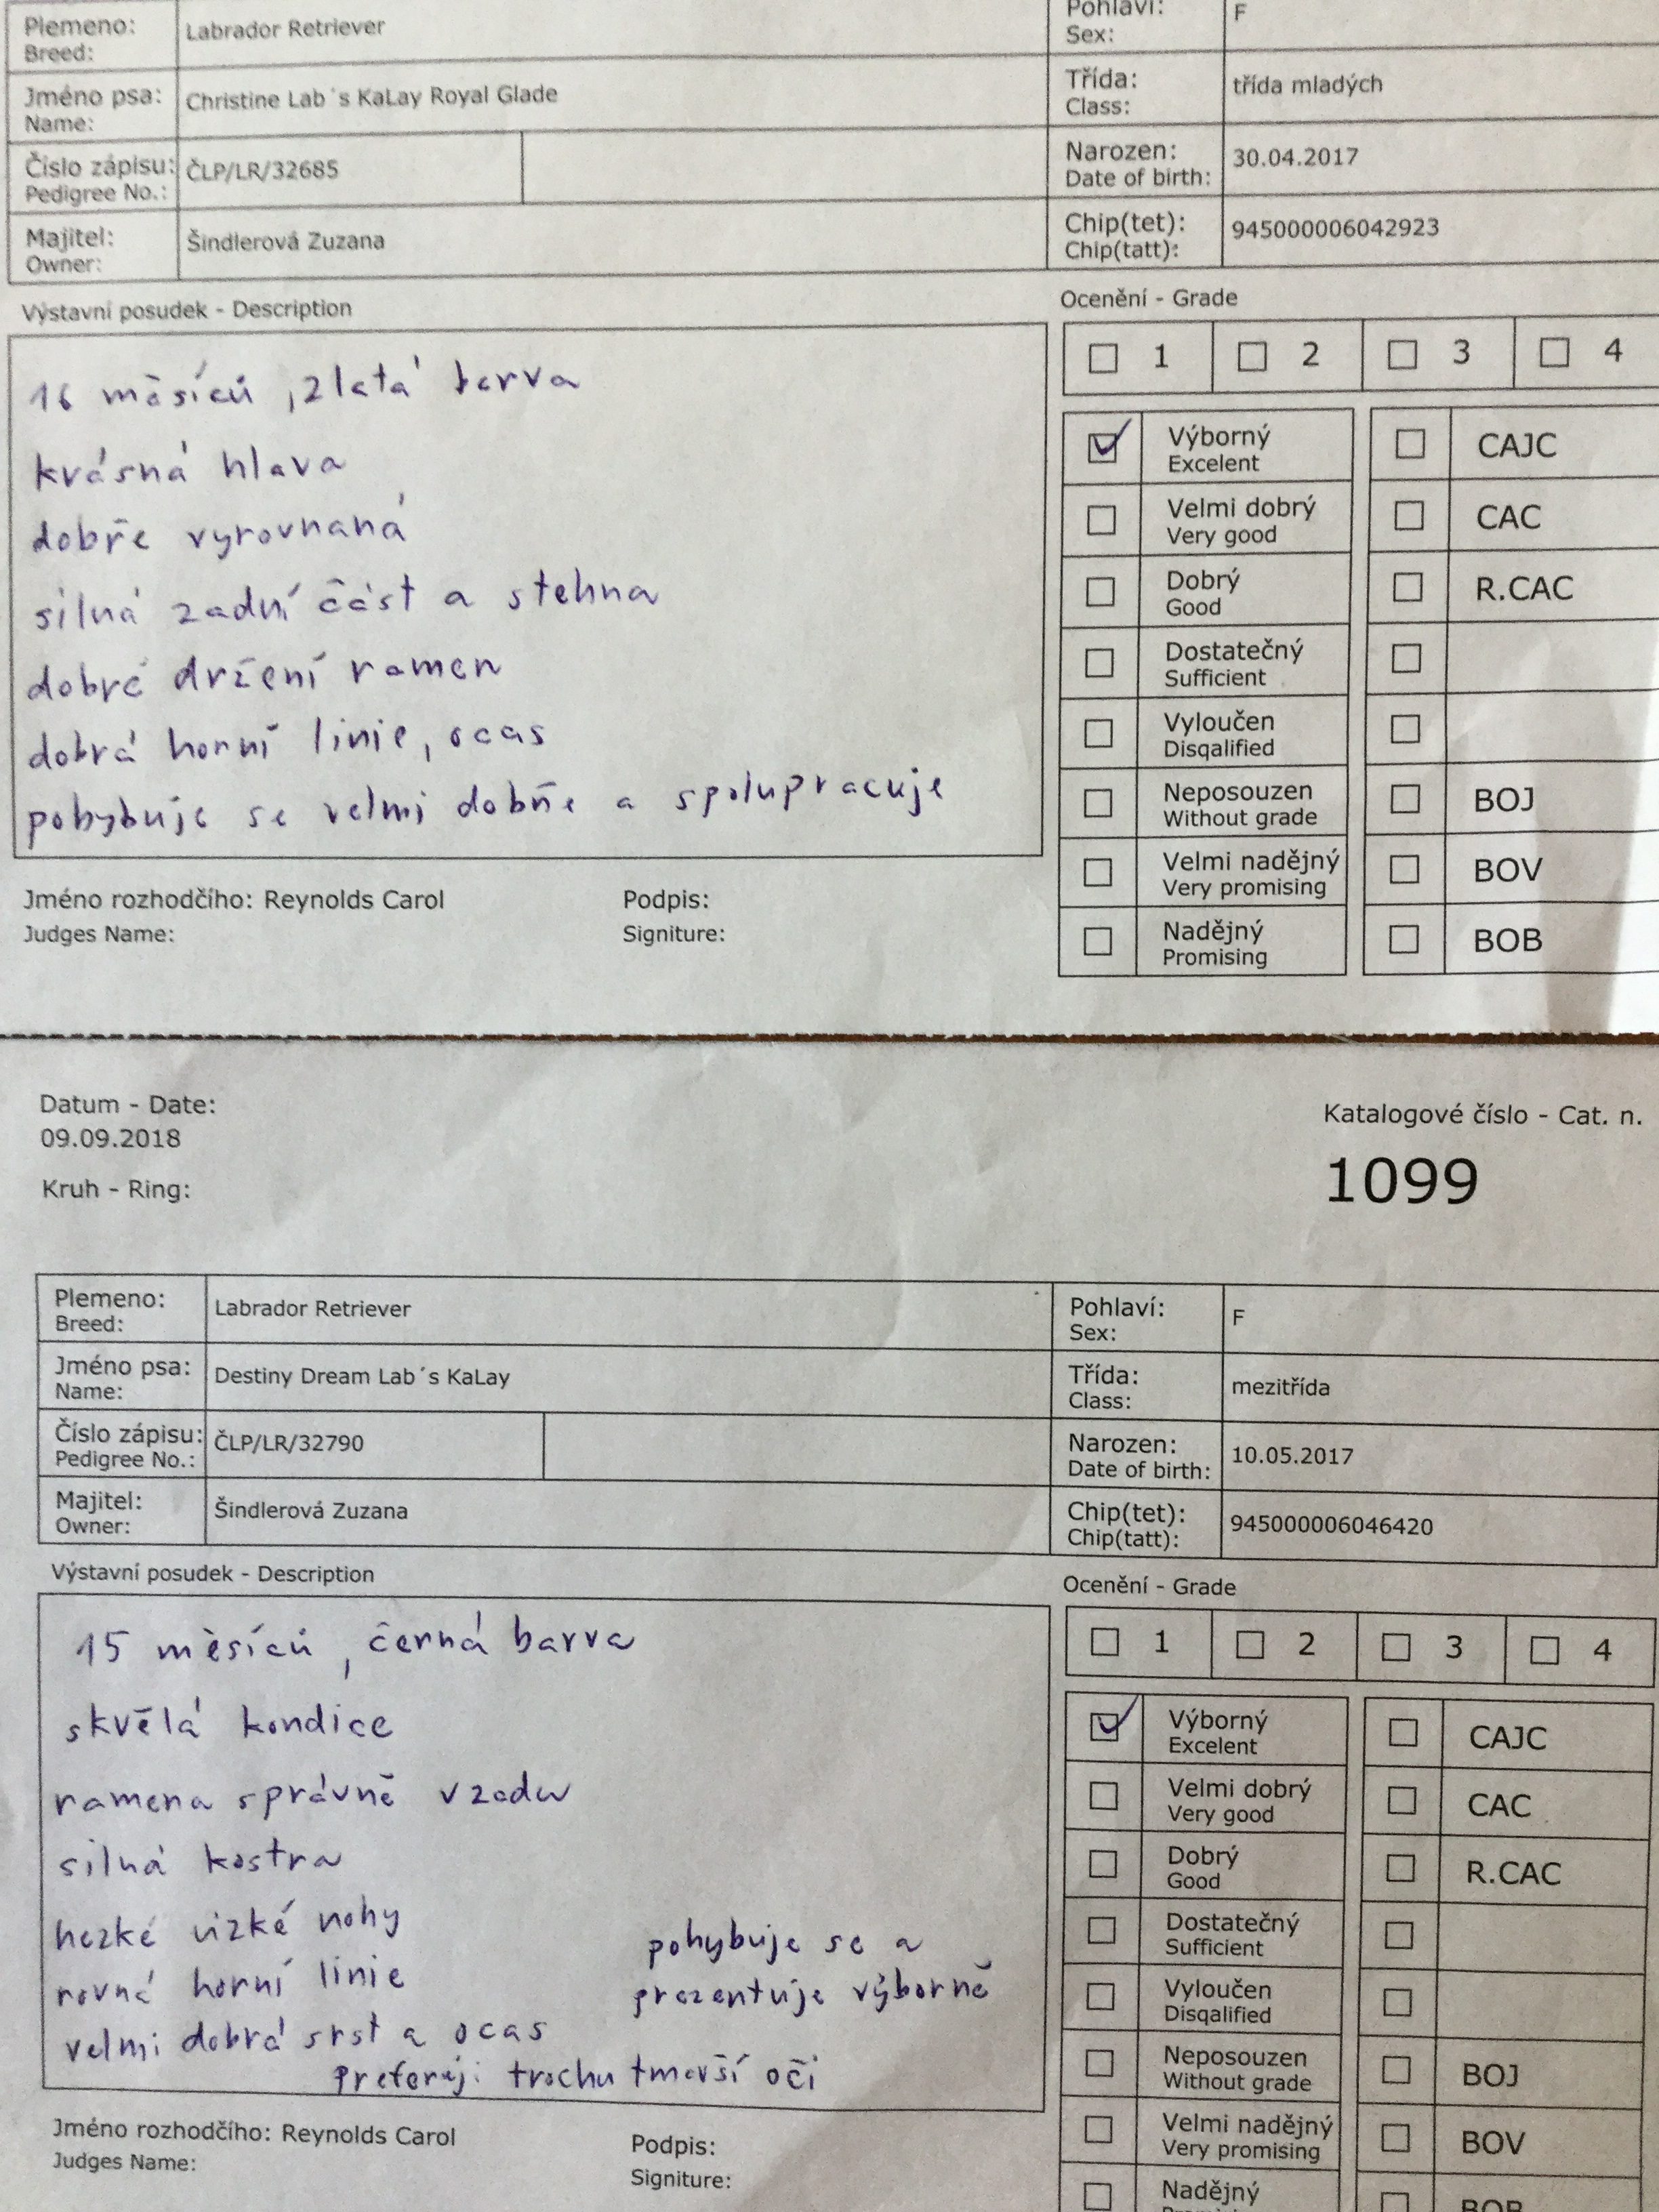 Plemeno: Labrador Retriever Pohlaví: F
Breed: Sex:
Jméno psa: Christine Lab´s KaLay Royal Glade Třída: třída mladých
Name: Class:
Číslo zápisu: ČLP/LR/32685 Narozen: 30.04.2017
Pedigree No.: Date of birth:
Majitel: Šindlerová Zuzana Chip(tet): 945000006042923
Owner: Chip(tatt):
Výstavní posudek - Description
16 měsíců, zlatá barva
krásná hlava
dobře vyrovnaná
silná zadní část a stehna
dobré držení ramen
dobrá horní linie, ocas
pohybuje se velmi dobře a spolupracuje
Jméno rozhodčího: Reynolds Carol Podpis:
Judges Name: Signiture:
Ocenění - Grade
1 2 3 4
Výborný CAJC
Excelent
Velmi dobrý CAC
Very good
Dobrý R.CAC
Good
Dostatečný
Sufficient
Vyloučen
Disqalified
Neposouzen BOJ
Without grade
Velmi nadějný BOV
Very promising
Nadějný BOB
Promising
Datum - Date:
09.09.2018
Kruh - Ring:
Katalogové číslo - Cat. n.
1099
Plemeno: Labrador Retriever Pohlaví: F
Breed: Sex:
Jméno psa: Destiny Dream Lab´s KaLay Třída: mezitřída
Name: Class:
Číslo zápisu: ČLP/LR/32790 Narozen: 10.05.2017
Pedigree No.: Date of birth:
Majitel: Šindlerová Zuzana Chip(tet): 945000006046420
Owner: Chip(tatt):
Výstavní posudek - Description
15 měsíců, černá barva
skvělá kondice
ramena správně vzadu
silná kostra
hezké nízké nohy
rovná horní linie
velmi dobrá srst a ocas
pohybuje se a
prezentuje výborně
preferuji trochu tmavší oči
Jméno rozhodčího: Reynolds Carol Podpis:
Judges Name: Signiture:
Ocenění - Grade
1 2 3 4
Výborný CAJC
Excelent
Velmi dobrý CAC
Very good
Dobrý R.CAC
Good
Dostatečný
Sufficient
Vyloučen
Disqalified
Neposouzen BOJ
Without grade
Velmi nadějný BOV
Very promising
Nadějný BOB